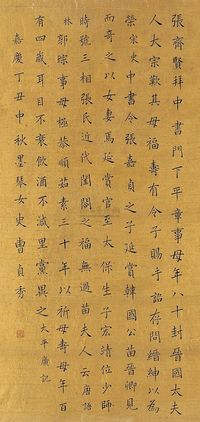 張齊賢拜中書門下平章事母年八十封晉國太夫
人太宗歎其母福壽有令子賜手詔存問搢紳以為
榮宗史中書令張嘉貞之子延賞韓國公苗晉卿見
而奇之以女妻焉延賞官至太保生子宏靖位少師
時號三相張氏近代閨閫之福無過苗夫人云唐語
林郭宗事母極恭順茹素三十年以祈母壽母年百
有四歲耳目不衰飲酒不減里黨異之太平廣記
嘉慶丁丑中秋墨琴女史曹貞秀